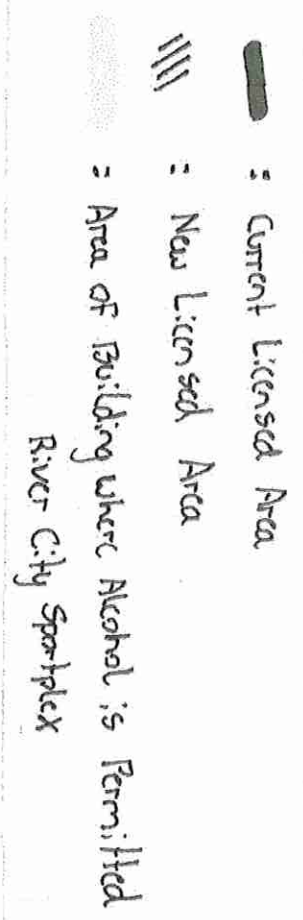 : Current Licensed Area
: New Licensed Area
: Area of Building Where Alcohol is Permitted
River City Sportplex